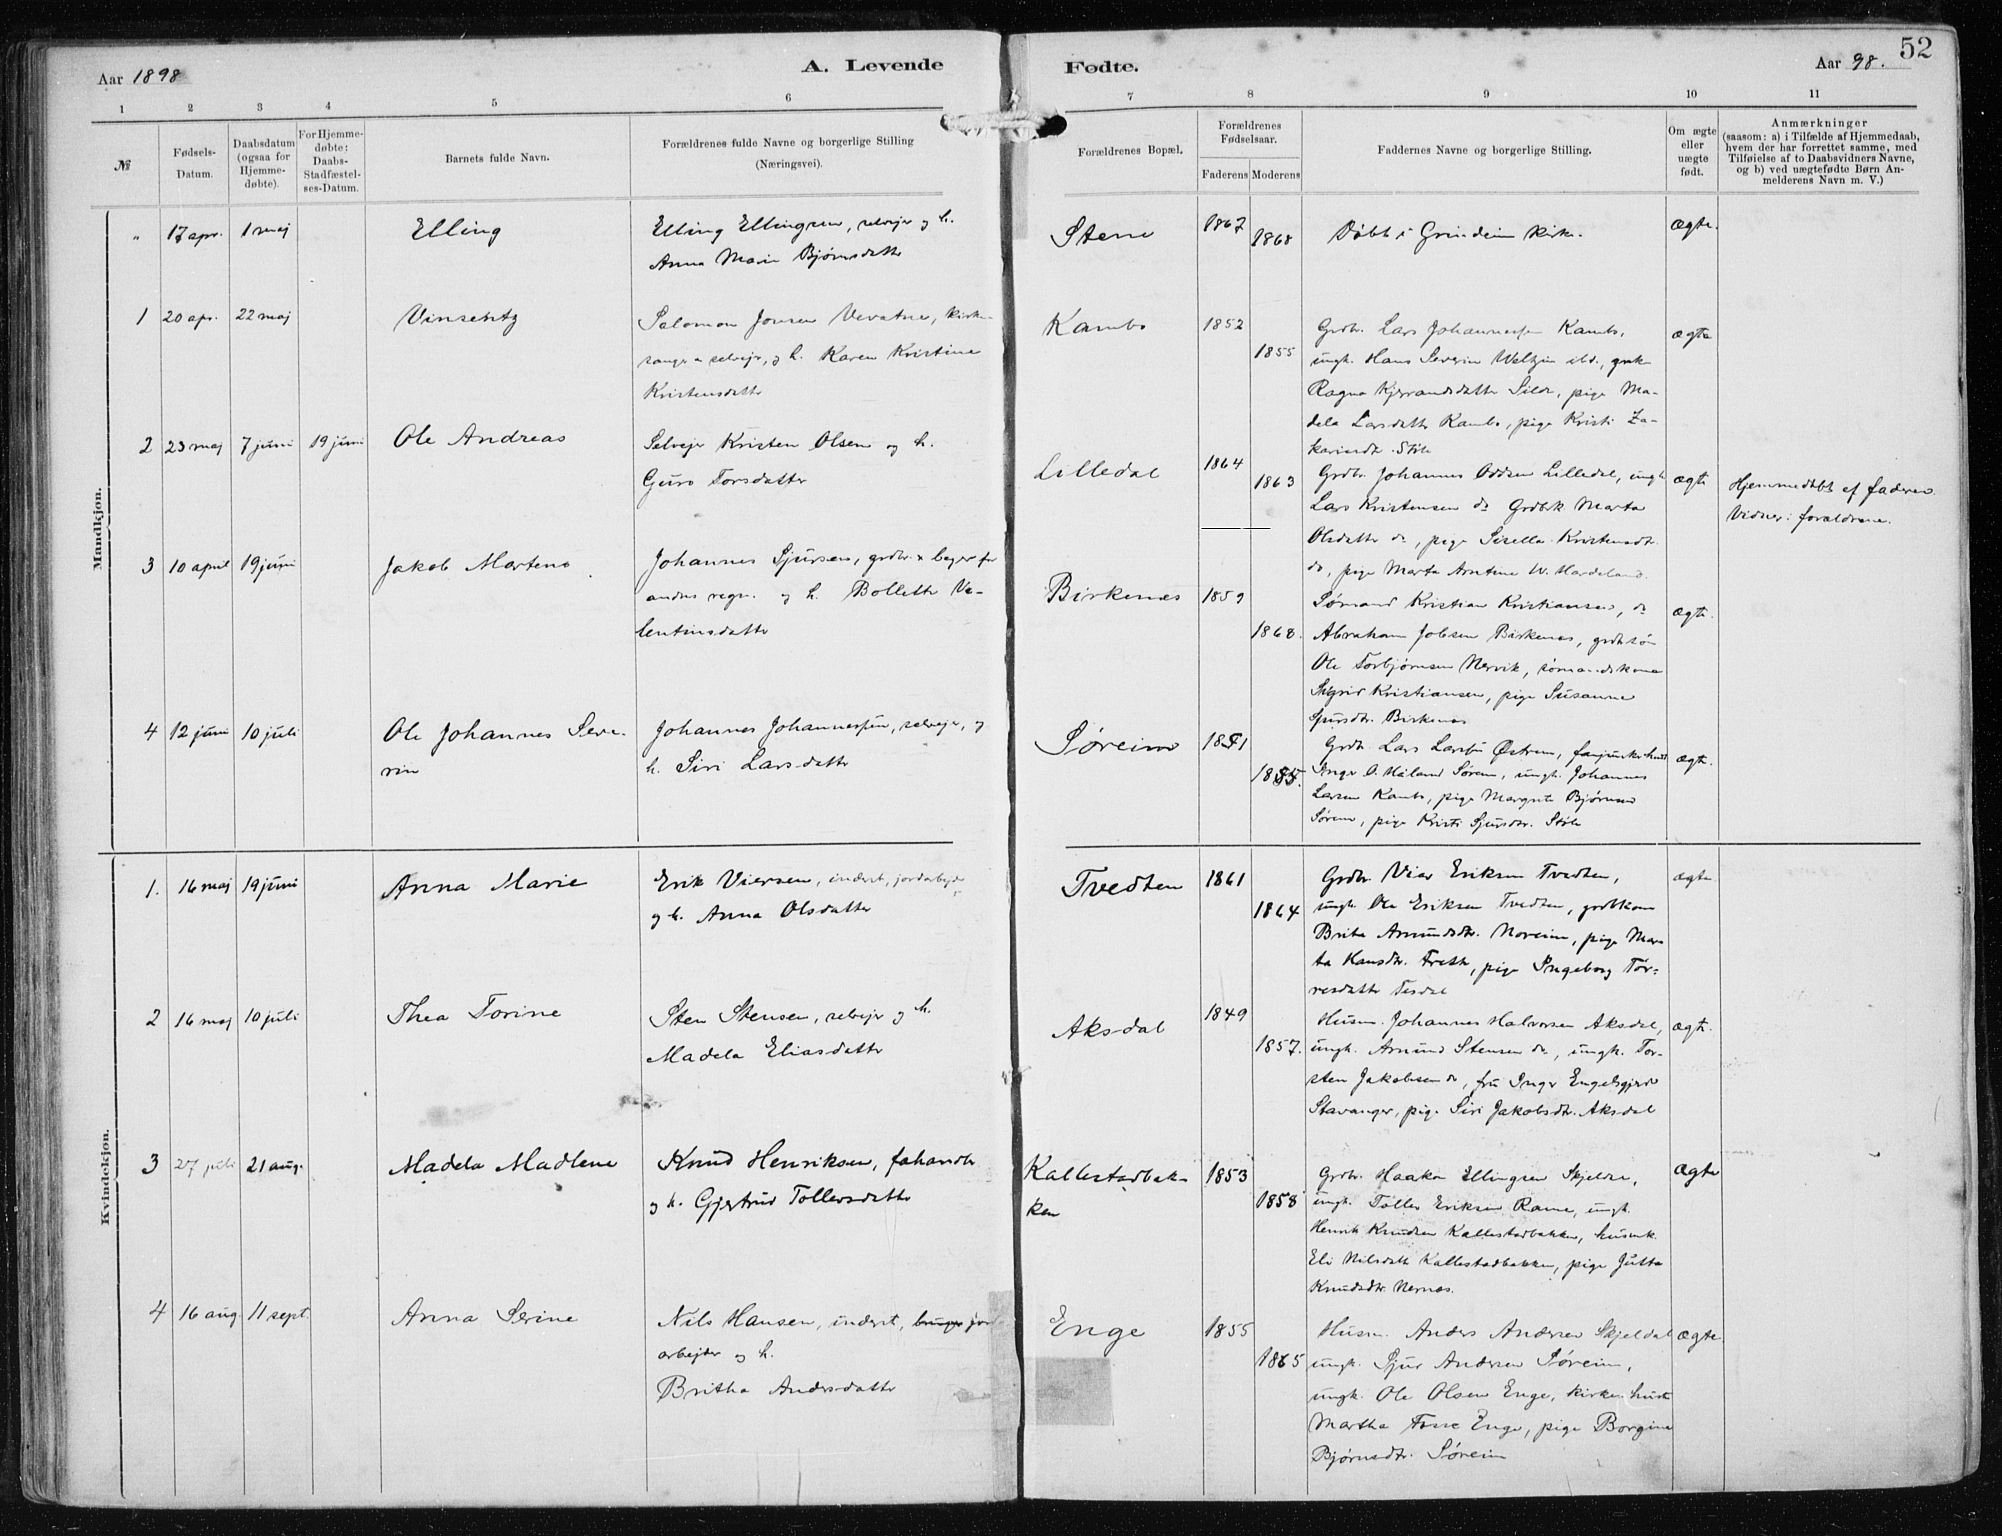 52
Aar 1898
A. Levende
Fødte.
Aar 98.
1 2 3 4 5 6 7 8 9 10 11
№
Fødsels-
Datum.
Daabsdatum
(ogsaa for
Hjemme-
døbte).
For Hjemme-
døbte:
Daabs-
Stadfæstel-
ses-Datum.
Barnets fulde Navn.
Forældrenes fulde Navne og borgerlige Stilling
(Næringsvei).
Forældrenes Bopæl.
Forældrenes
Fødselsaar.
Faderens Moderens
Faddernes Navne og borgerlige Stilling.
Om ægte
eller
uægte
født.
Anmærkninger
(saasom: a) i Tilfælde af Hjemmedaab,
hvem der har forrettet samme, med
Tilføielse af to Daabsvidners Navne,
og b) ved uægtefødte Børn An-
melderens Navn m. V.)
Mandkjøn.
" 17 apr. 1 maj
Elling
Elling Ellingsen, selvejer og h.
Anna Marie Bjørnsdatter
Stene
1867
1868
Døbt i Grindeim Kirke.
ægte.
1 20 apr. 22 maj
Vinsentz
Salomon Jonsen Vevatne, kirke-
sanger selvejer, og h. Karen Kristine
Kristensdatter
Kambo
1852
1855
Grdbr. Lars Johannessen Kambo,
ungk. Hans Severin Weltzin ibd., grdk
Ragna Kjerrandsdatter Silde, pige Ma-
dela Larsdatter Kambo, pige Kristi Za-
kariasdtr. Støle
ægte
2 23 maj 7 juni 19 juni
Ole Andreas
Selvejer Kristen Olsen og h.
Guro Torsdatter
Lilledal
1864
1863
Grdbr. Johannes Oddsen Lilledal, ungk.
Lars Kristensen do Grdbk. Marta
Olsdatter do, pige Sisella Kristensdtr.
do, pige Marta Arntine W. Hardeland.
ægte
Hjemmedøbt af faderen.
Vidner: forældrene.
3 10 april 19 juni
Jakob Martens
Johannes Sjursen, grdbr. & bager for
andres regn. og h. Bollette Va-
lentinsdatter
Birkenes
1859
1868.
Sømand Kristian Kristiansen, do
Abraham Jobsen Birkenes, grdbrsøn
Ole Torbjørnsen Nervik, sømandskone
Sigrid Kristiansen, pige Susanne
Sjursdtr. Birkenes
ægte.
4 12 juni 10 juli
Ole Johannes Seve-
rin
Johannes Johannessen, selvejer, og
h. Siri Larsdatter
Søreim
1851
1855.
Grdb. Lars Larsen Østrem, fanjunkerhust
Inger O. Håland Søreim, ungk. Johannes
Larsen Kambo, pige Margrete Bjørnsen
Søreim, pige Kristi Sjursdtr. Støle
ægte.
Kvindekjøn.
1. 16 maj 19 juni
Anna Marie
Erik Viersen, inderst, jordarbejder
og h. Anna Olsdatter
Tvedten
1861
1864
Grdbr. Vier Eriksen Tvedten,
ungk. Ole Eriksen Tvedten, grdbkone
Brita Amundsdtr. Noreim, pige Mar-
ta Hansdtr. Frette, pige Ingeborg Tør-
resdatter Tesdal
ægte
2 16 maj 10 juli
Thea Torine
Sten Stensen, selvejer og h.
Madela Eliasdatter
Aksdal
1849
1857.
Husm. Johannes Halvorsen Aksdal,
ungk. Amund Stensen do, ungk. Tor-
sten Jakobsen do, fru Inger Engelsgjerd
Stavanger, pige Siri Jakobsdtr. Aksdal
ægte.
3 27 juli 21 aug.
Madela Madlene
Knud Henriksen, fehandler
og h. Gjertrud Tollevsdatter
Kallestadbak-
ken
1853
1858
Grdbr. Haakon Ellingsen Skjelde,
ungk. Tollev Eriksen Rame, ungk.
Henrik Knudsen Kallestadbakken, husmk.
Eli Nilsdatter Kallestadbakken, pige Jutta
Knudsdtr. Nernes.
ægte
4 16 aug. 11 sept.
Anna Serine
Nils Hansen, inderst, jord-
arbejder og h.
Britha Andersdatter
Enge
1855
1865
Husm. Anders Andersen Skjeldal
ungk. Sjur Andersen Søreim,
ungk. Ole Olsen Enge, kirkes. hustr.
Martha Fosse Enge, pige Borgine
Bjørnsdtr. Søreim
ægte.